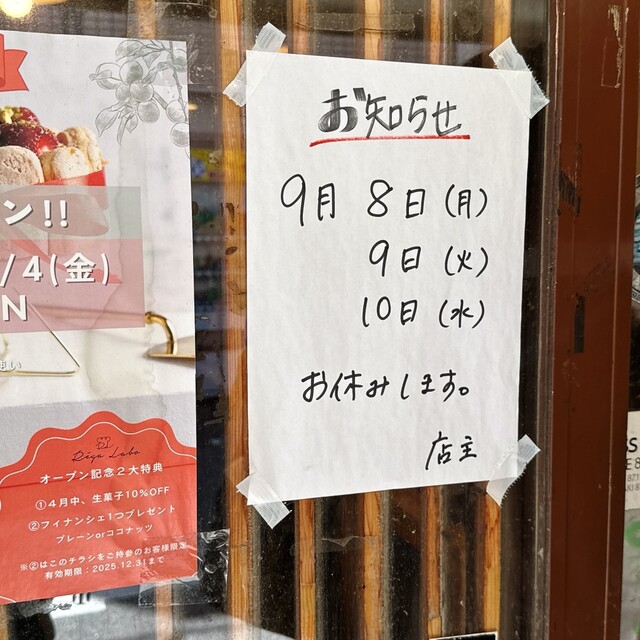 お知らせ
9月 8日(月)
9日(火)
10日(水)
お休みします。
店主
ン!!
/4(金)
N
Réga Labo
オープン記念2大特典
①4月中、生菓子10%OFF
②フィナンシェ1つプレゼント
プレーンorココナッツ
※②はこのチラシをご持参のお客様限定
有効期限：2025.12.31まで